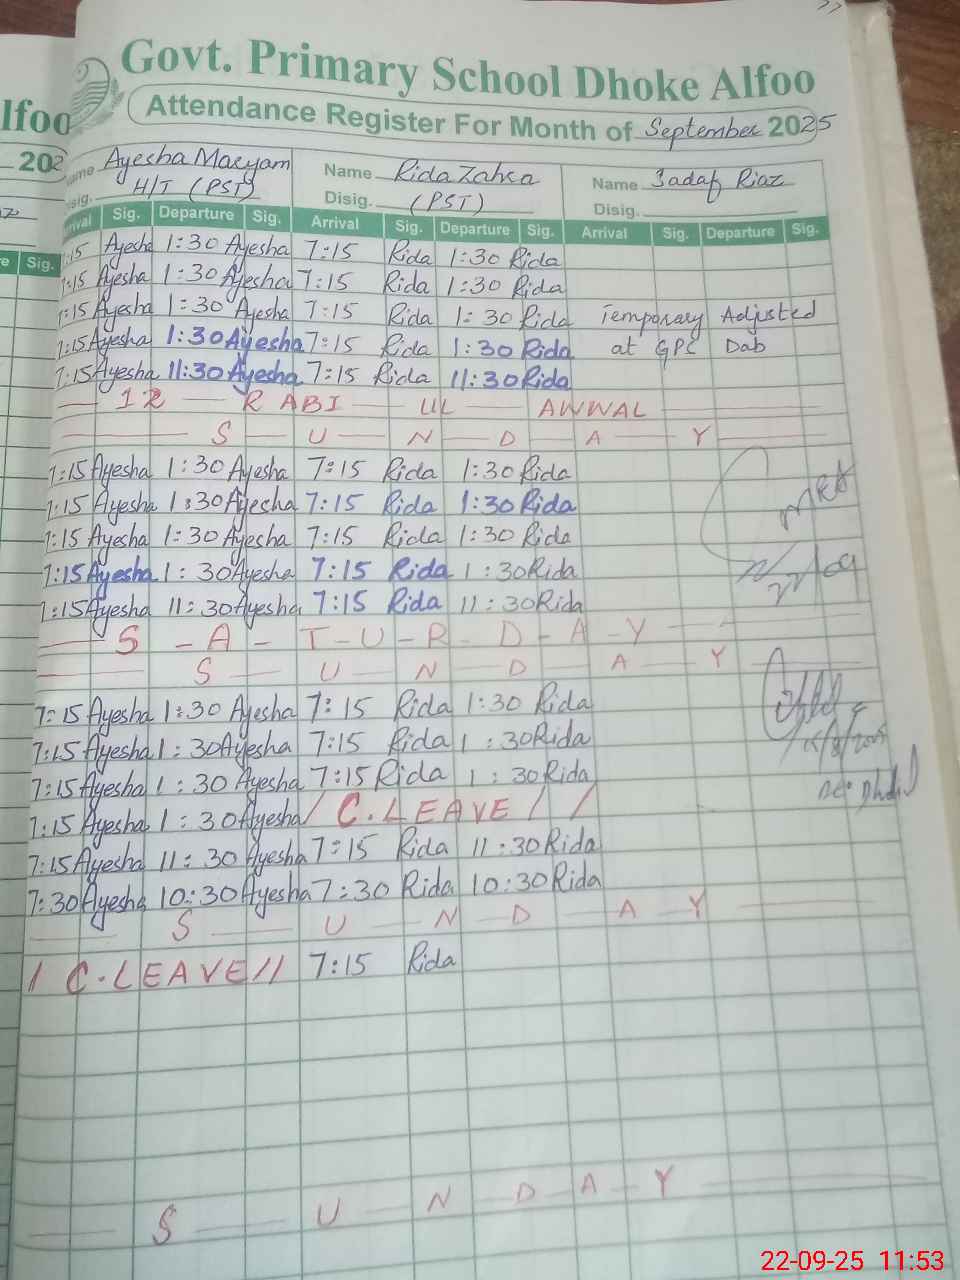 Govt. Primary School Dhoke Alfoo
Attendance Register For Month of September 2025
lfoo
202
Name Ayesha Maryam Name Rida Zahra Name Sadaf Riaz
Disig. H/T (PST) Disig. (PST) Disig.
Arrival Sig. Departure Sig. Arrival Sig. Departure Sig. Arrival Sig. Departure Sig.
e Sig.
7:15 Ayesha 1:30 Ayesha 7:15 Rida 1:30 Rida
7:15 Ayesha 1:30 Ayesha 7:15 Rida 1:30 Rida
7:15 Ayesha 1:30 Ayesha 7:15 Rida 1:30 Rida Temporary Adjusted
7:15 Ayesha 1:30 Ayesha 7:15 Rida 1:30 Rida at GPS Dab
7:15 Ayesha 11:30 Ayesha 7:15 Rida 11:30 Rida
12 RABI UL AWWAL
S U N D A Y
7:15 Ayesha 1:30 Ayesha 7:15 Rida 1:30 Rida
7:15 Ayesha 1:30 Ayesha 7:15 Rida 1:30 Rida
7:15 Ayesha 1:30 Ayesha 7:15 Rida 1:30 Rida
7:15 Ayesha 1:30 Ayesha 7:15 Rida 1:30 Rida
7:15 Ayesha 11:30 Ayesha 7:15 Rida 11:30 Rida
S - A - T - U - R - D - A - Y
S U N D A Y
7:15 Ayesha 1:30 Ayesha 7:15 Rida 1:30 Rida
7:15 Ayesha 1:30 Ayesha 7:15 Rida 1:30 Rida
7:15 Ayesha 1:30 Ayesha 7:15 Rida 1:30 Rida
7:15 Ayesha 1:30 Ayesha / C.LEAVE / /
7:15 Ayesha 11:30 Ayesha 7:15 Rida 11:30 Rida
7:30 Ayesha 10:30 Ayesha 7:30 Rida 10:30 Rida
S U N D A Y
/ C.LEAVE // 7:15 Rida
S U N D A Y
22-09-25 11:53